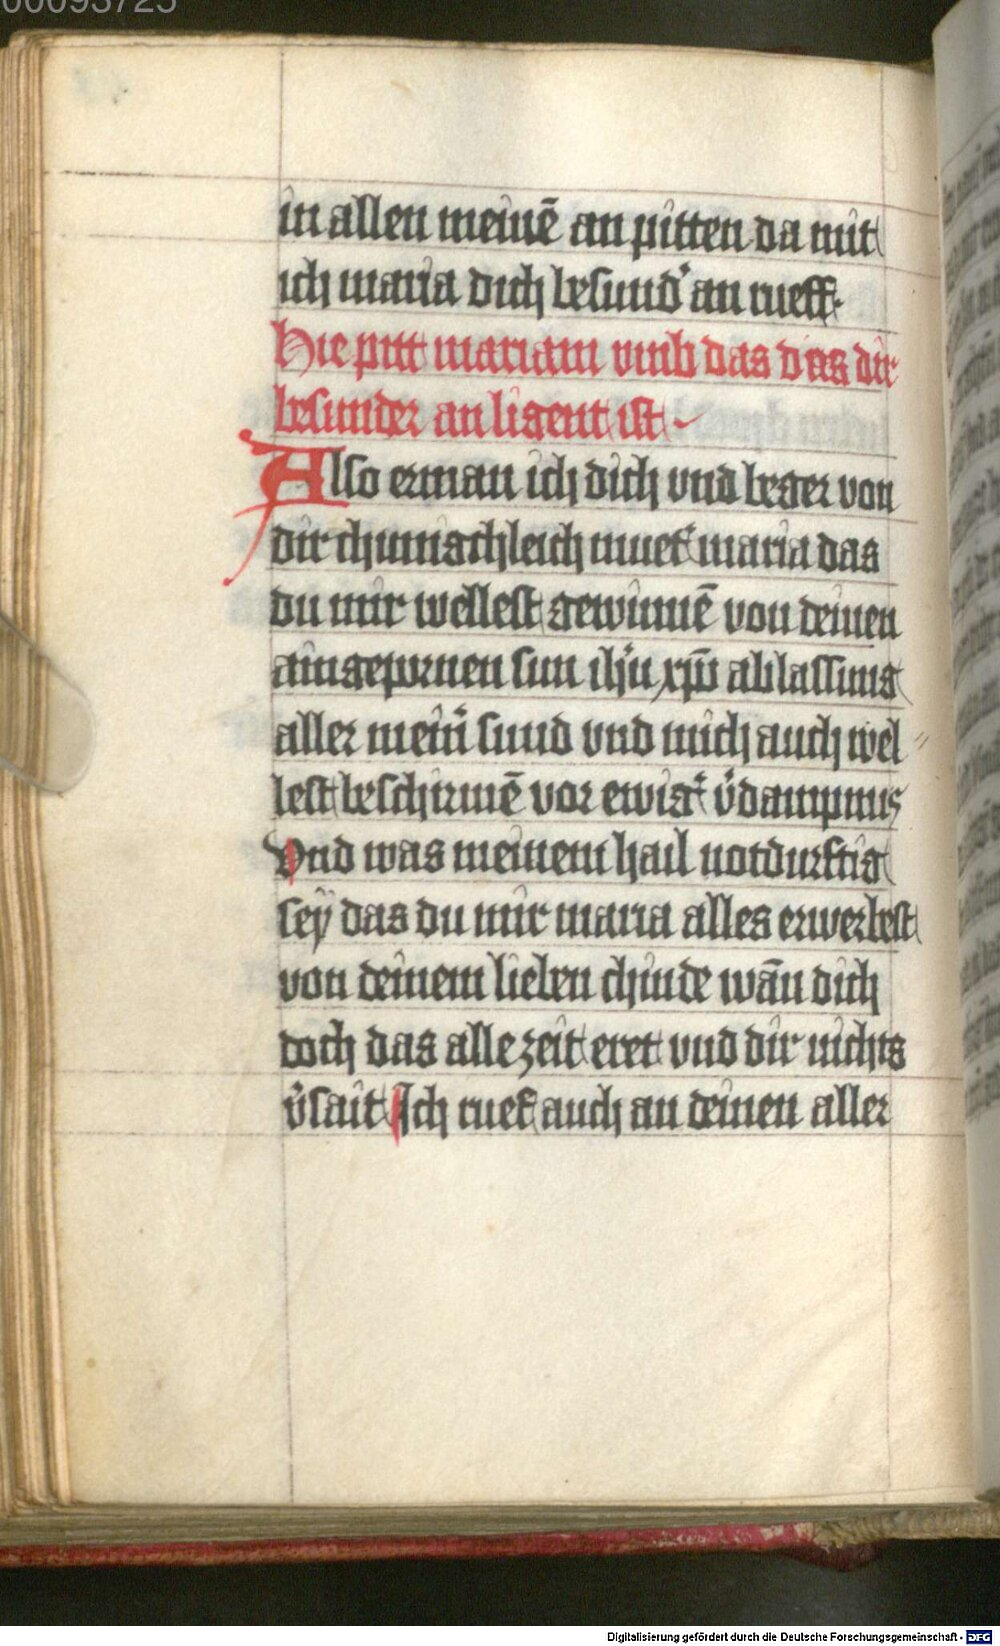 00093725
in allen meinē an pitten da mit
ich maria dich besund' an rueff.
Hie pitt mariam vmb das das dir
besunder an ligent ist
Also erman ich dich vnd beger von
dir chunigchleich muet maria das
du mir wellest gewinnē von deinen
aingepornen sun ih'u xp̄ū ablassung
aller mein' sund vnd mich auch wel
lest beschirmē vor ewig' v'dampnus
Vnd was meinem hail notdurftig
seÿ das du mir maria alles erwerbest
von deinem lieben chinde wān dich
doch das alle zeit eret vnd dir nichts
v'sait Ich ruef auch an deinen aller
Digitalisierung gefördert durch die Deutsche Forschungsgemeinschaft - DFG